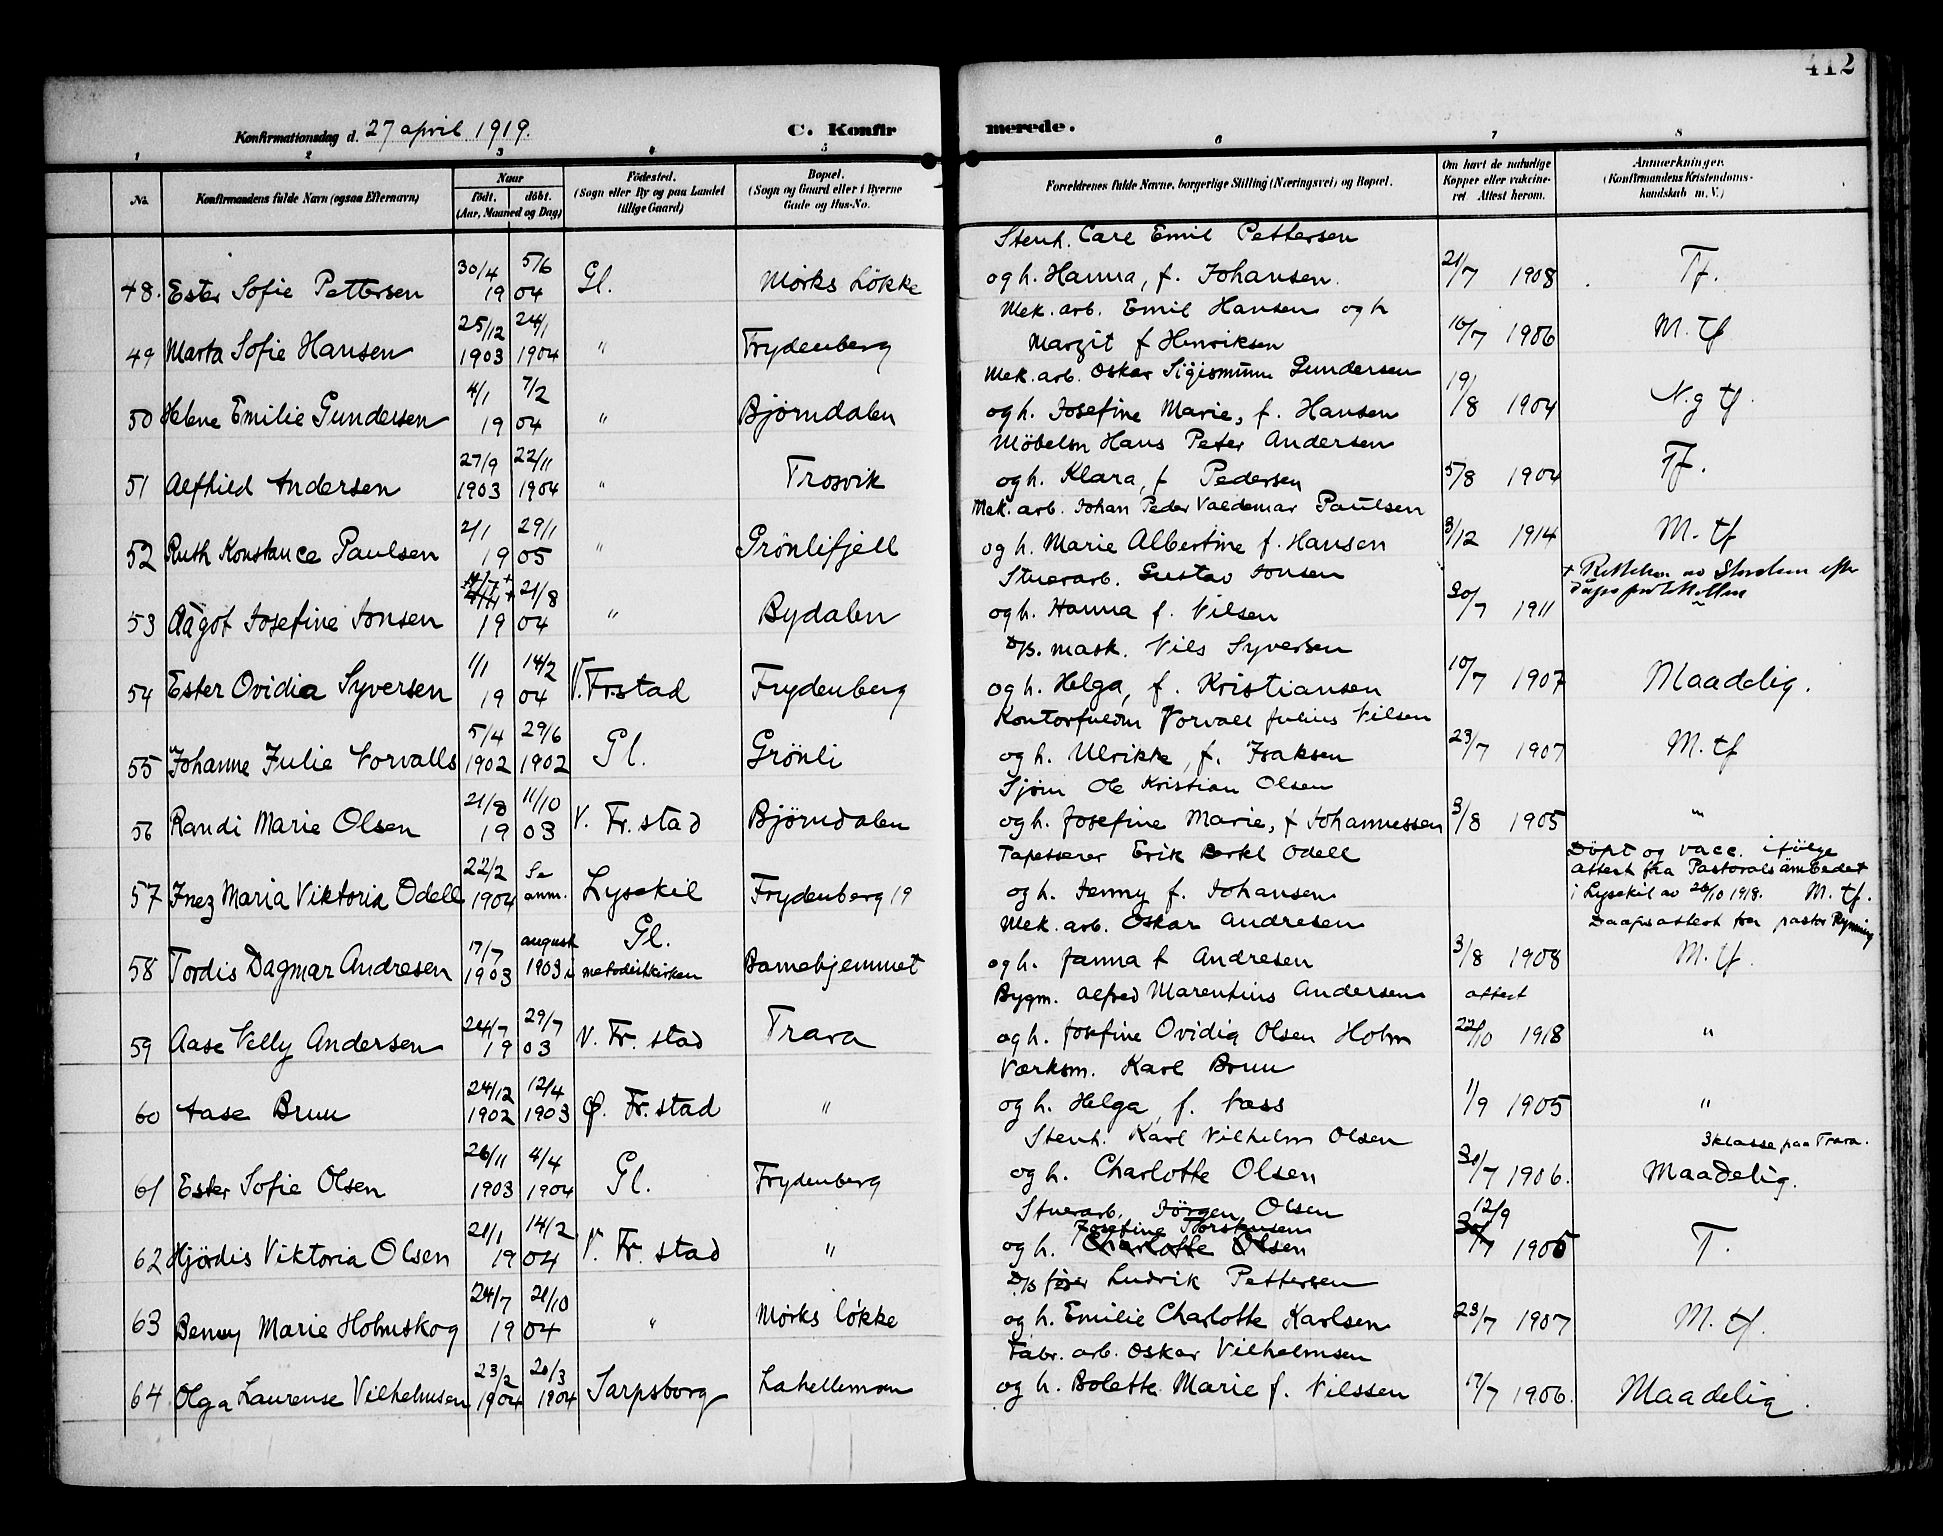 412
Konfirmationsdag d. 27 april 1919. C. Konfirmerede.
1 2 3 4 5 6 7 8
No. Konfirmandens fulde Navn (ogsaa Efternavn) Naar født. døbt. (Aar, Maaned og Dag) Fødested. (Sogn eller By og paa Landet tillige Gaard) Bopæl. (Sogn og Gaard eller i Byerne Gade og Hus-No. Forældrenes fulde Navne, borgerlige Stilling (Næringsvei) og Bopæl. Om havt de naturlige Kopper eller vakcineret Attest herom. Anmærkninger. (Konfirmandens Kristendomskundskab m. V.)
Stenh. Carl Emil Pettersen
48. Ester Sofie Pettersen 30/4 1904 5/6 Gl. Mørks Løkke og h. Hanna, f. Johansen. 21/7 1908 Tf.
Mek. arb. Emil Hansen og h
49 Marta Sofie Hansen 25/12 1903 24/1 1904 " Frydenberg Margit f Henriksen 10/7 1906 M. tf
Mek. arb. Oskar Sigismunn Gundersen
50 Helene Emilie Gundersen 4/1 1904 7/2 " Bjørndalen og h. Josefine Marie, f. Hansen 19/8 1904 N.g tf.
Møbelsn Hans Peter Andersen
51 Alfhild Andersen 27/9 1903 22/11 1904 " Trosvik og h. Klara, f. Pedersen 5/8 1904 Tf.
Mek. arb. Johan Peder Valdemar Paulsen
52 Ruth Konstance Paulsen 2/1 1905 29/1 " Grönlifjell og h. Marie Albertine f. Hansen 3/12 1914 M. tf
Stuerarb. Gustav Jonsen + Rettelse av
53 Aagot Josefine Jonsen 1904 21/8 " Bydalen og h. Hanna f. Nilsen 30/7 1911
D/s. mask. Nils Syversen
54 Ester Ovidia Syversen 1/1 1904 14/2 V. Fr.stad Frydenberg og h. Helga, f. Kristiansen 10/7 1907 Maadelig.
Kontorfuldm Norvall Julius Nilsen
55 Johanne Julie Norvalls 5/4 1902 29/6 1902 Gl. Grönli og h. Ulrikke, f. Isaksen 23/7 1907 M. tf
Sjøm Ole Kristian Olsen
56 Randi Marie Olsen 21/8 1903 11/10 V. Fr. stad Bjørndalen og h. Josefine Marie, f Johannessen 3/8 1905 "
Tapetserer Erik Bertil Odell Døpt og vacc. ifølge
attest fra Pastoralsämbedet
57 Inez Maria Viktoria Odell 22/2 1904 Se anm. Lysekil Frydenberg 19 og h. Jenny f. Johansen i Lysekil av 28/10 1918. M. tf.
Mek. arb. Oskar Andresen Daapsattest fra pastor Rynning
58 Tordis Dagmar Andresen 17/7 1903 august 1903 i Gl. metodistkirken Barnehjemmet og h. Janna f Andresen 3/8 1908 M. tf.
Bygm. Alfred Marentius Andersen attest
59 Aase Nelly Andersen 24/7 1903 29/7 V. Fr. stad Trara og h. Josefine Ovidia Olsen Holm 22/10 1918 "
Værksm. Karl Bruu
60 Aase Bruu 24/12 1902 12/4 1903 Ø. Fr. stad " og h. Helga, f. Næss 11/9 1905 "
Stenh. Karl Vilhelm Olsen 3 klasse paa Trara.
61 Ester Sofie Olsen 26/11 1903 4/4 1904 Gl. Frydenberg og h. Charlotte Olsen 30/7 1906. Maadelig.
Stuerarb. Jörgen Olsen 12/9
Josefine Torstensen
62 Hjördis Viktoria Olsen 21/1 1904 14/2 V. Fr. stad " og h. Charlotte Olsen 30/7 1905 T.
D/s fører Ludvik Pettersen
63 Benny Marie Holmskog 24/7 1904 21/10 " Mørks løkke og h. Emilie Charlotte Karlsen 23/7 1907 M. tf.
Fabr. arb. Oskar Vilhelmsen
64 Olga Laurense Vilhelmsen 23/2 1904 20/3 1904 Sarpsborg Lahellemoen og h. Bolette Marie f. Nilssen 17/7 1906. Maadelig.